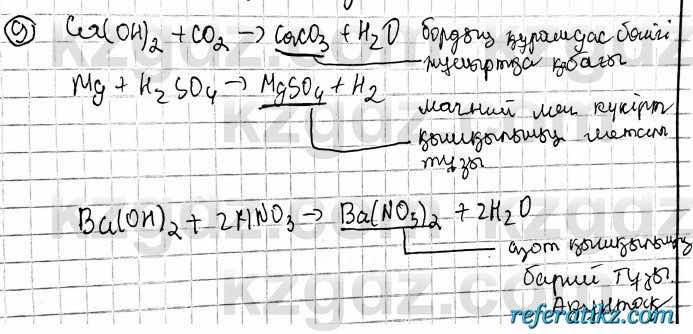 9 Ca(OH)2 + CO2 → CaCO3 + H2O бордың құрамдас бөлігі
жұмыртқа қабағы
Mg + H2SO4 → MgSO4 + H2
магний мен күкірт
қышқылының
тұзы
Ba(OH)2 + 2HNO3 → Ba(NO3)2 + 2H2O
азот қышқылының
барий тұзы.
kzgdz.com
referatikz.com